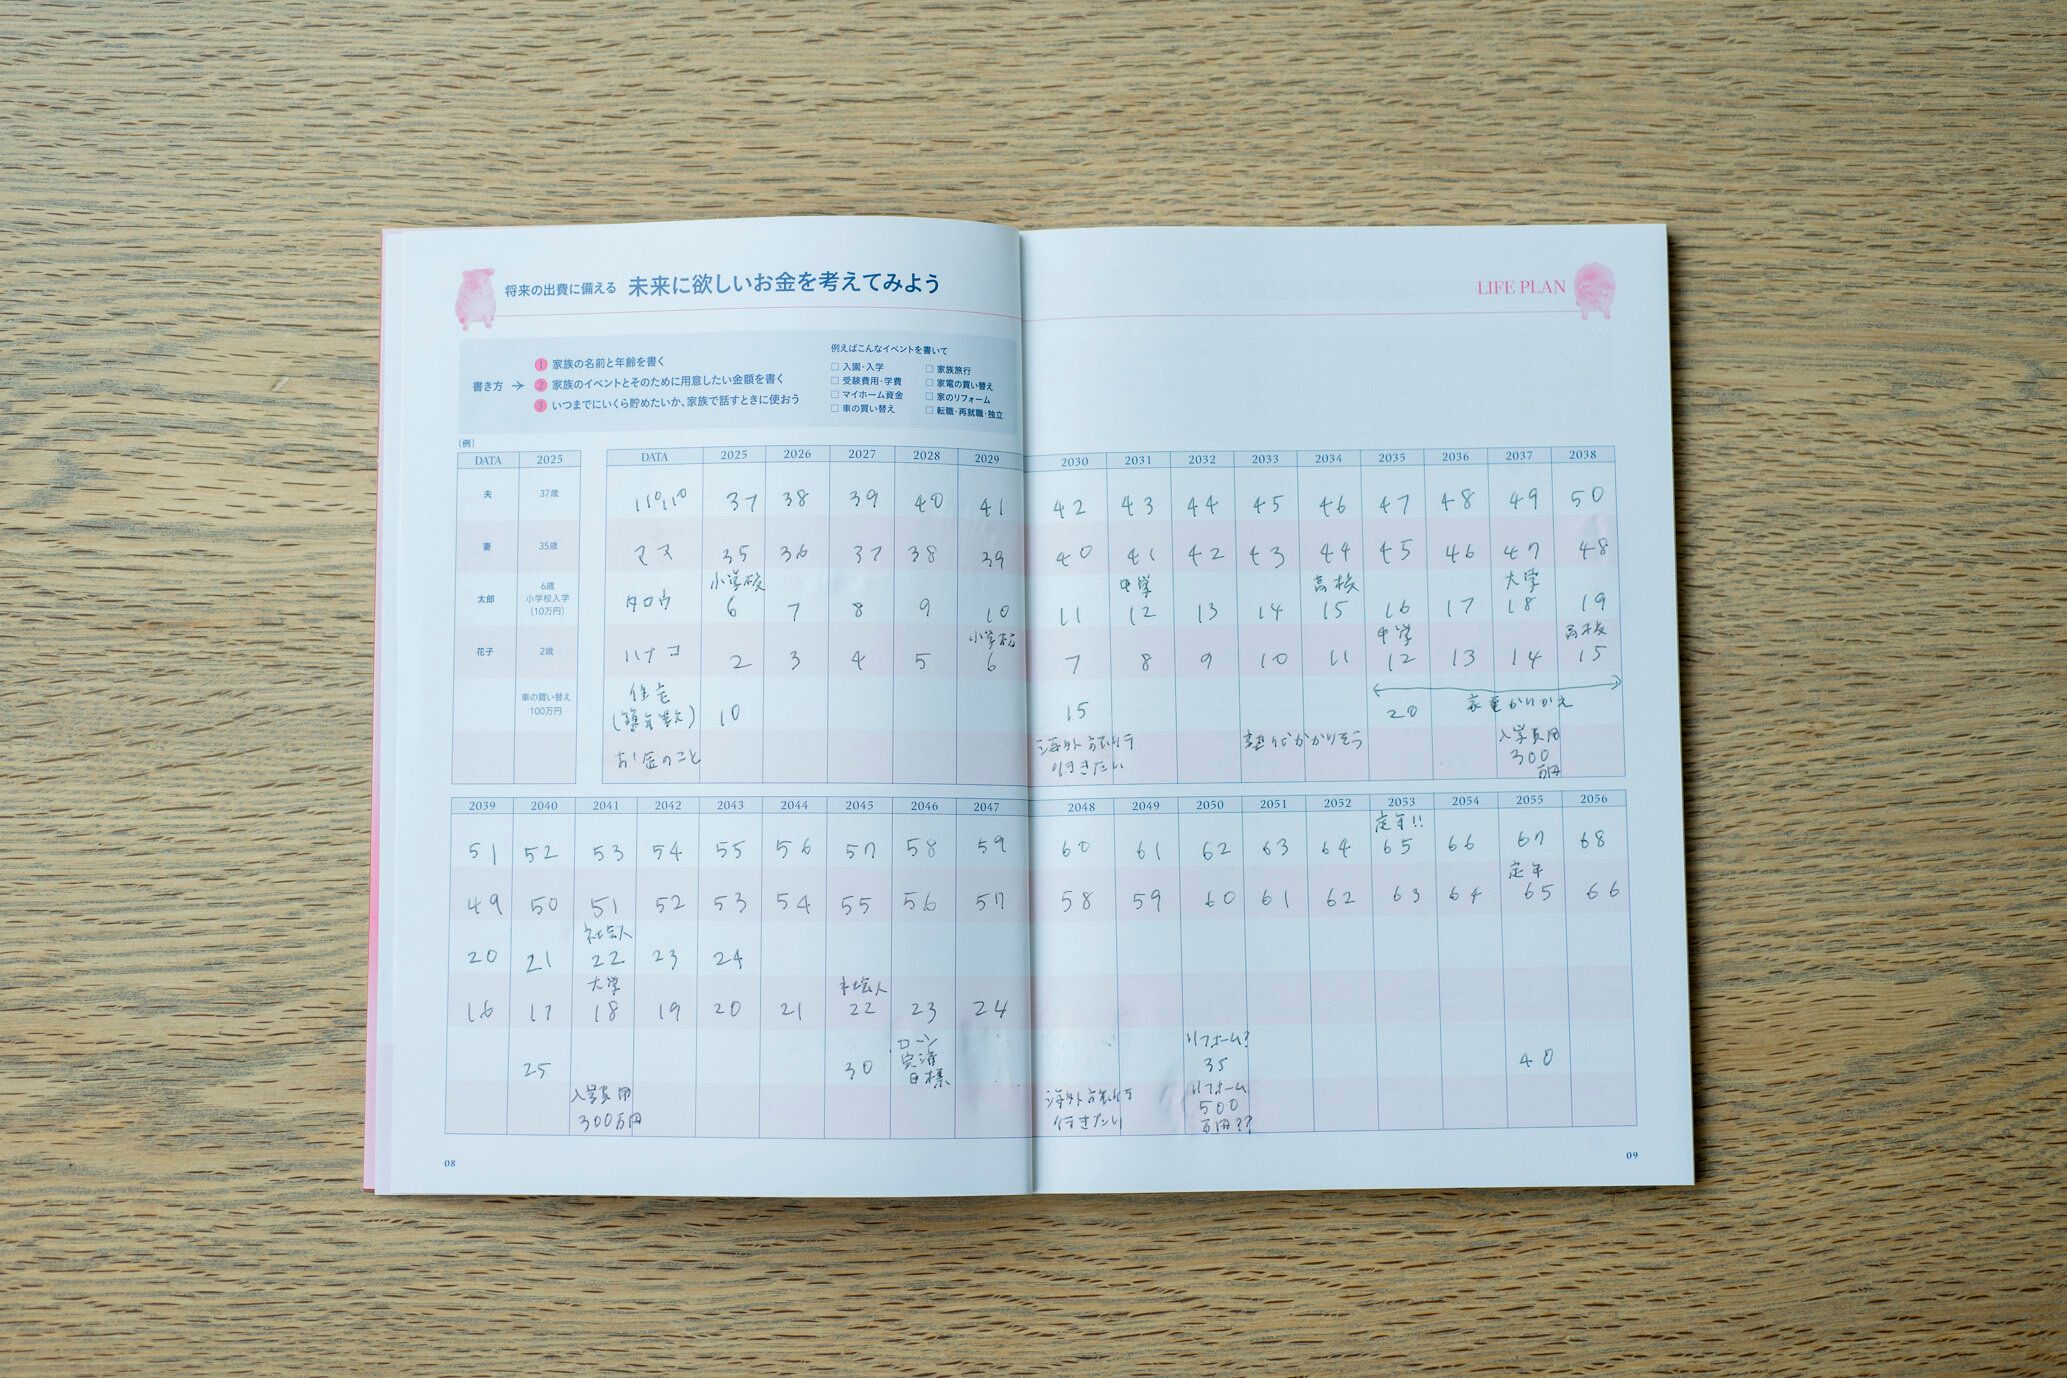 将来の出費に備える 未来に欲しいお金を考えてみよう
LIFE PLAN
書き方 →
1 家族の名前と年齢を書く
2 家族のイベントとそのために用意したい金額を書く
3 いつまでにいくら貯めたいか、家族で話すときに使おう
例えばこんなイベントを書いて
□ 入園・入学 □ 家族旅行
□ 受験費用・学費 □ 家電の買い替え
□ マイホーム資金 □ 家のリフォーム
□ 車の買い替え □ 転職・再就職・独立
(例)
DATA 2025
夫 37歳
妻 35歳
太郎 6歳
小学校入学
(10万円)
花子 2歳
車の買い替え
100万円
DATA 2025 2026 2027 2028 2029 2030 2031 2032 2033 2034 2035 2036 2037 2038
パパ 37 38 39 40 41 42 43 44 45 46 47 48 49 50
ママ 35 36 37 38 39 40 41 42 43 44 45 46 47 48
小学校 中学 高校 大学
タロウ 6 7 8 9 10 11 12 13 14 15 16 17 18 19
小学校 中学 高校
ハナコ 2 3 4 5 6 7 8 9 10 11 12 13 14 15
住宅
(築年数) 10 15 20 家電かいかえ
お金のこと 海外旅行
行きたい
塾代かかりそう
入学費用
300
万円
2039 2040 2041 2042 2043 2044 2045 2046 2047 2048 2049 2050 2051 2052 2053 2054 2055 2056
定年!!
51 52 53 54 55 56 57 58 59 60 61 62 63 64 65 66 67 68
定年
49 50 51 52 53 54 55 56 57 58 59 60 61 62 63 64 65 66
社会人
20 21 22 23 24
大学 社会人
16 17 18 19 20 21 22 23 24
25 30 ローン
完済
目標
リフォーム?
35 40
入学費用
300万円
海外旅行
行きたい
リフォーム
500
万円??
08
09